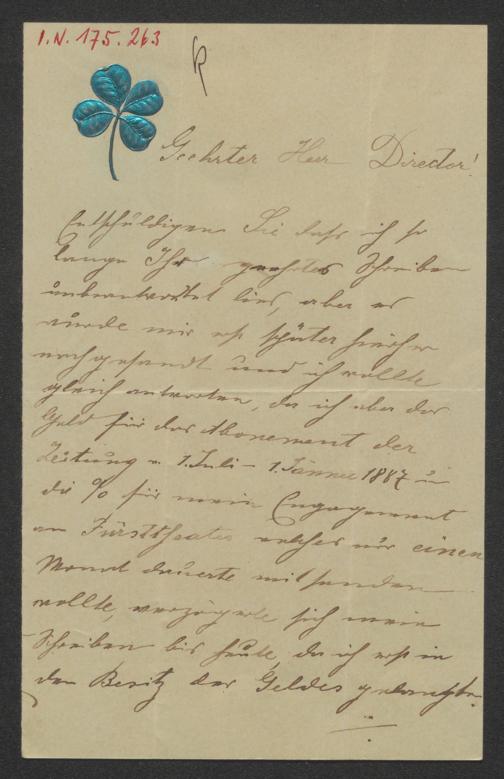 I.N. 175.263
Geehrter Herr Director!
Entschuldigen Sie dass ich so
lange Ihr geehrtes Schreiben
unbeantwortet lies, aber es
wurde mir erst später hierher
nachgesendt und ich wollte
gleich antworten, da ich aber das
Geld für das Abonement der
Zeitung v. 1. Juli - 1. Jänner 1887 u
die % für mein Engagement
am Fürsttheater welches nur einen
Monat dauerte mitsenden
wollte, verzögerte sich mein
Schreiben bis heute, da ich erst in
den Besitz des Geldes gelangte.